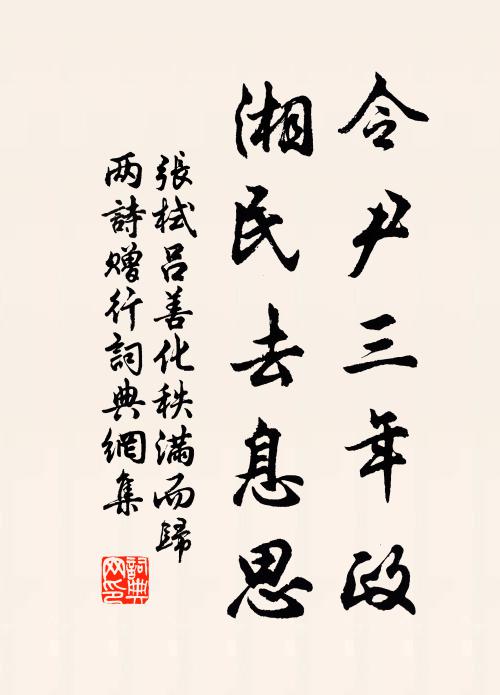 令尹三年政
湘民去息思
張栻呂善化秩滿而歸
两詩贈行詞典網集
詞典
网印